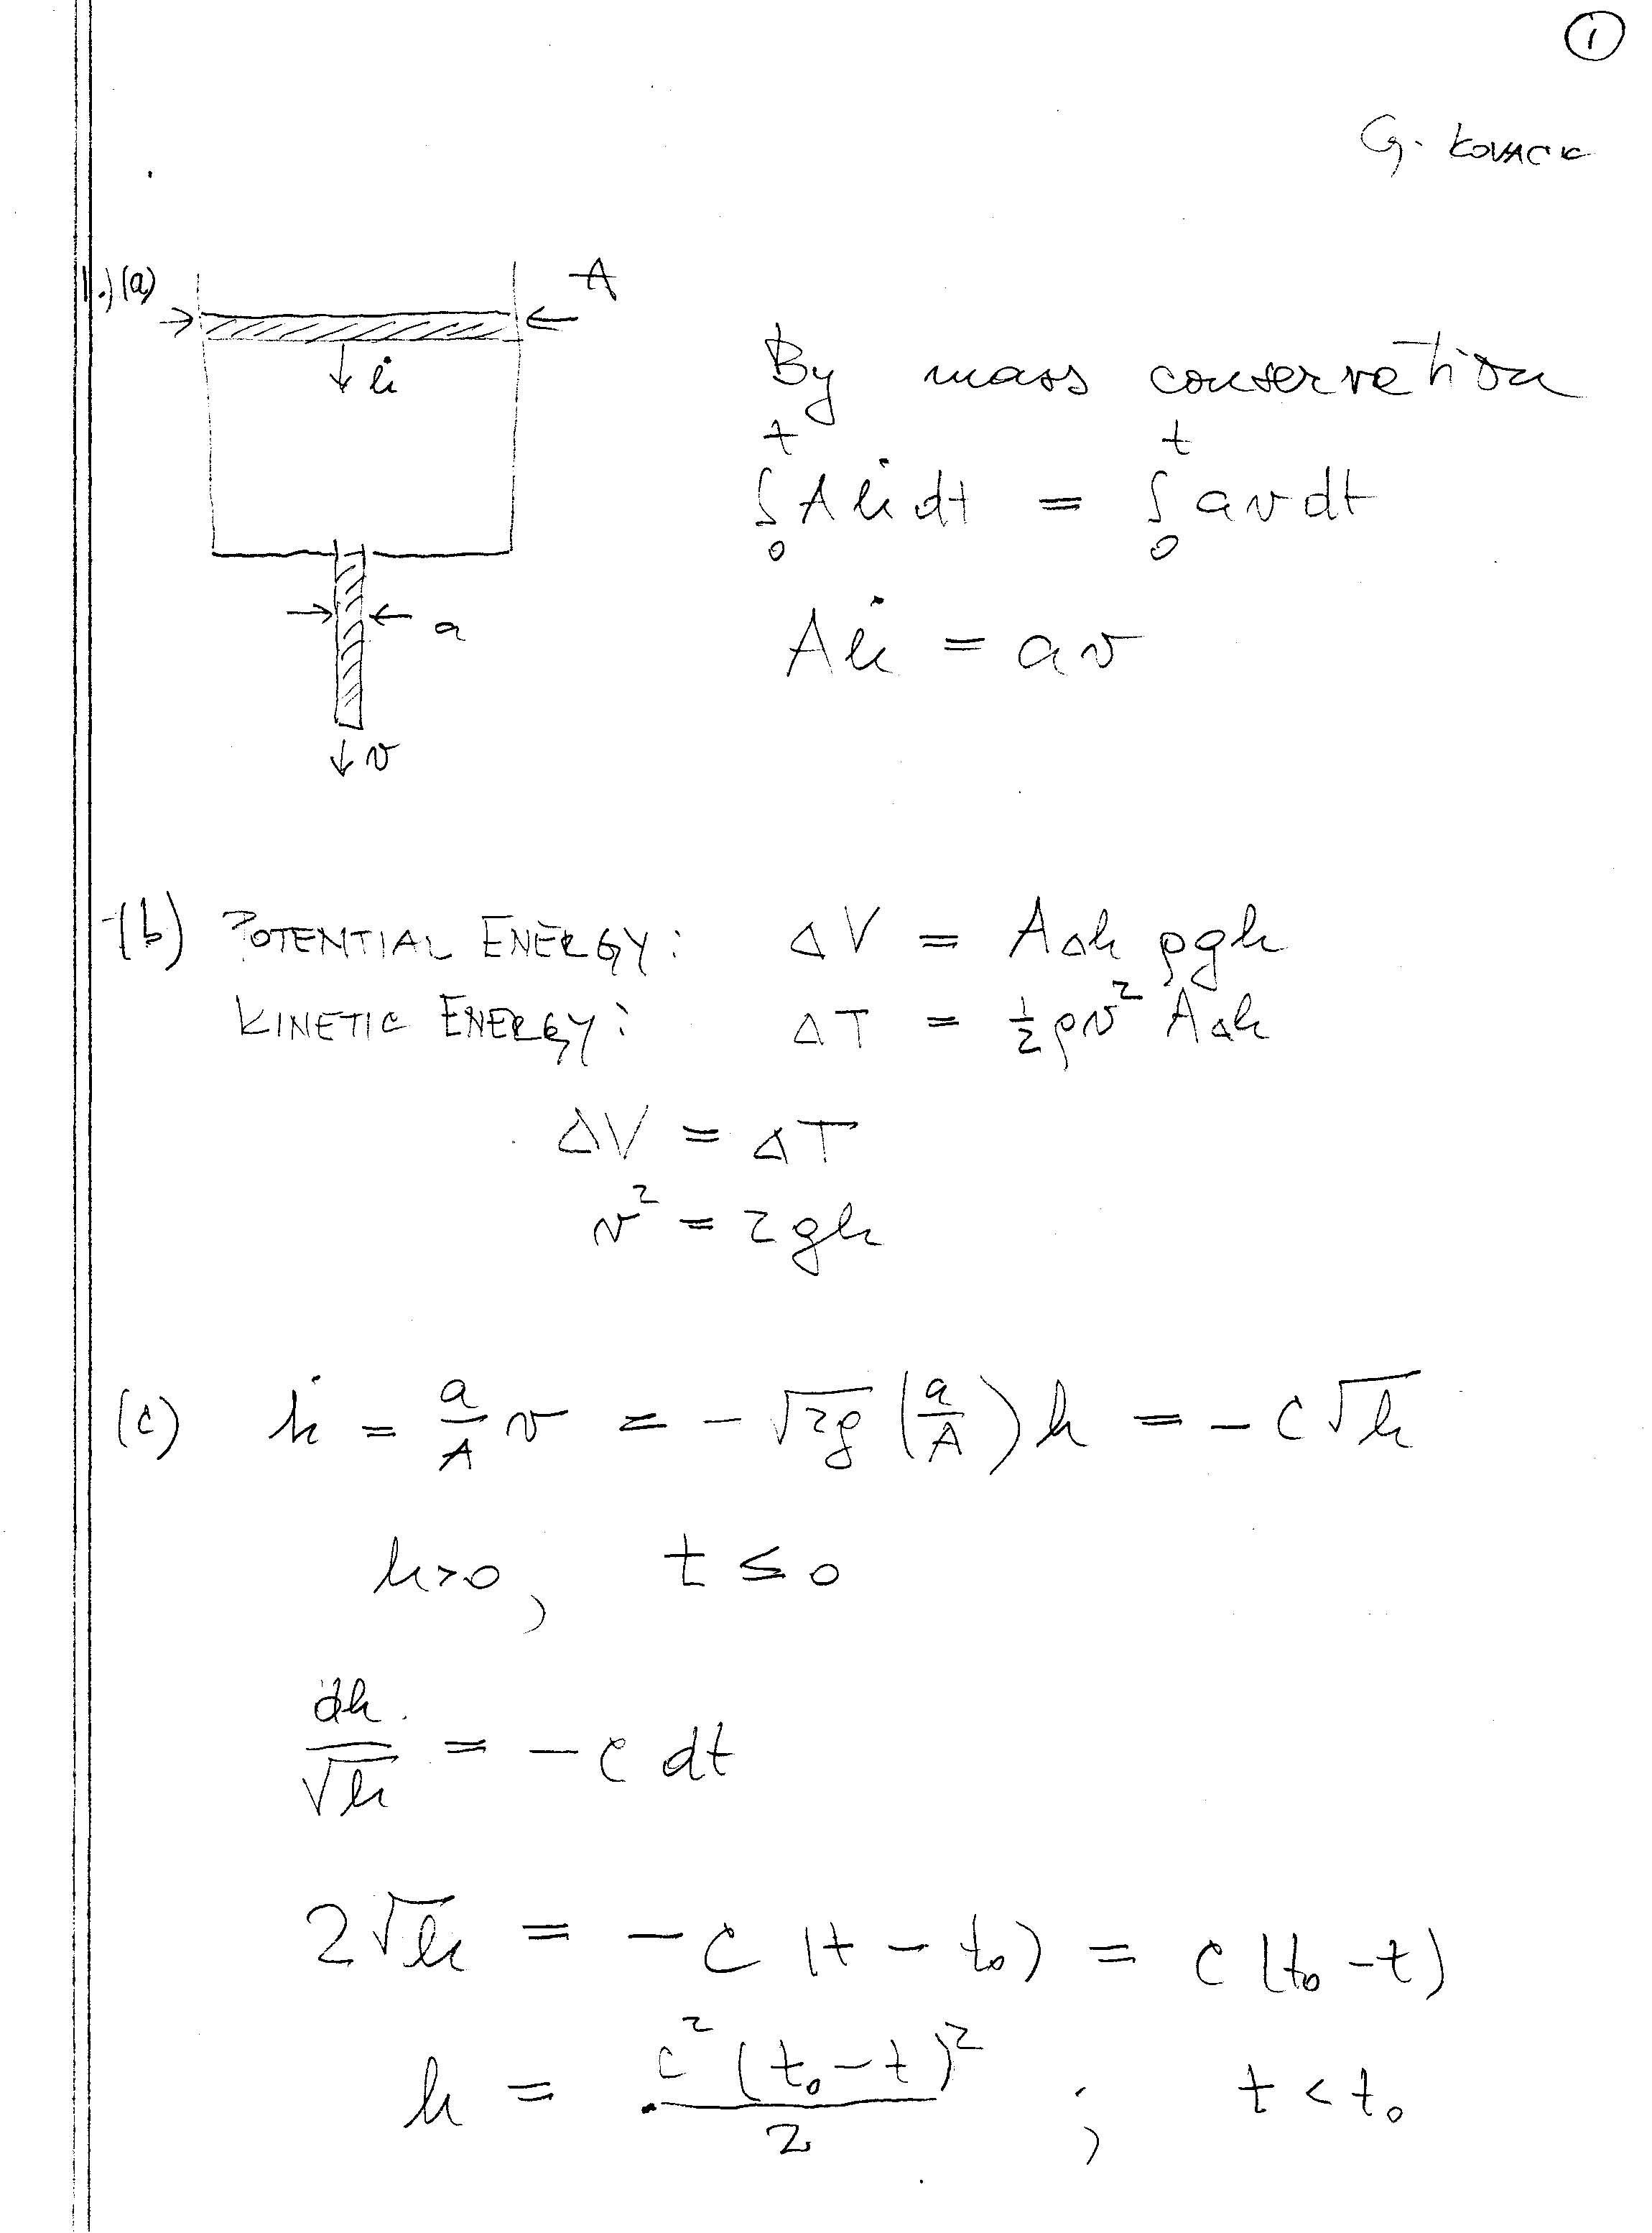 ①
G. KOVACIC
1.) (a)
A
ḣ
a
v
By mass conservation
∫₀ᵗ Aḣ dt = ∫₀ᵗ av dt
Aḣ = av
(b) POTENTIAL ENERGY: ΔV = AΔh ρgh
KINETIC ENERGY: ΔT = ½ρv² AΔh
ΔV = ΔT
v² = 2gh
(c) ḣ = a/A v = -√2g (a/A) h = -C√h
h>0, t ≤ 0
dh/√h = -c dt
2√h = -c (t - t₀) = c (t₀ - t)
h = c² (t₀ - t)² / 2 ; t < t₀